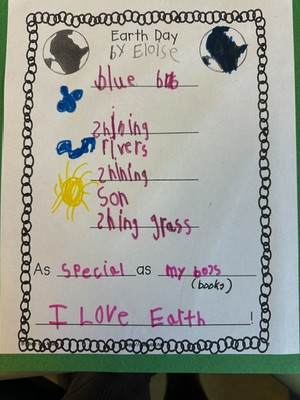 Earth Day
by Eloise
blue
shining
rivers
shining
son
shing grass
As special as my boos
(books)
I LOVE Earth!